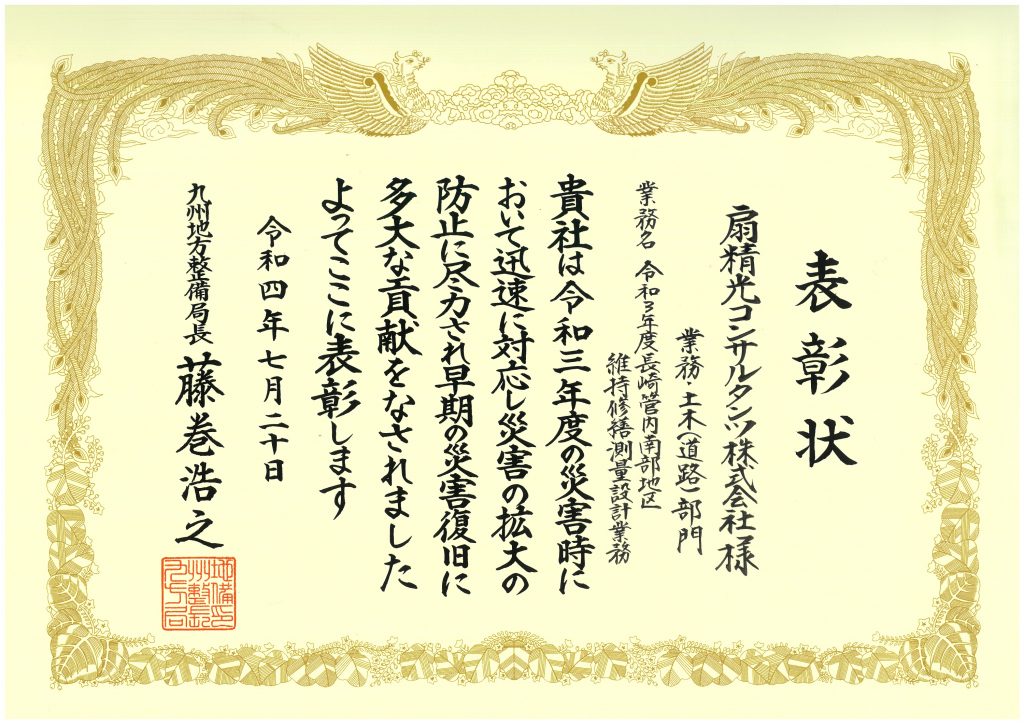 表彰状
扇精光コンサルタンツ株式会社様
業務・土木(道路)部門
業務名 令和3年度長崎管内南部地区
維持修繕測量設計業務
貴社は令和三年度の災害時に
おいて迅速に対応し災害の拡大の
防止に尽力され早期の災害復旧に
多大な貢献をなされました
よってここに表彰します
令和四年七月二十日
九州地方整備局長 藤巻浩之